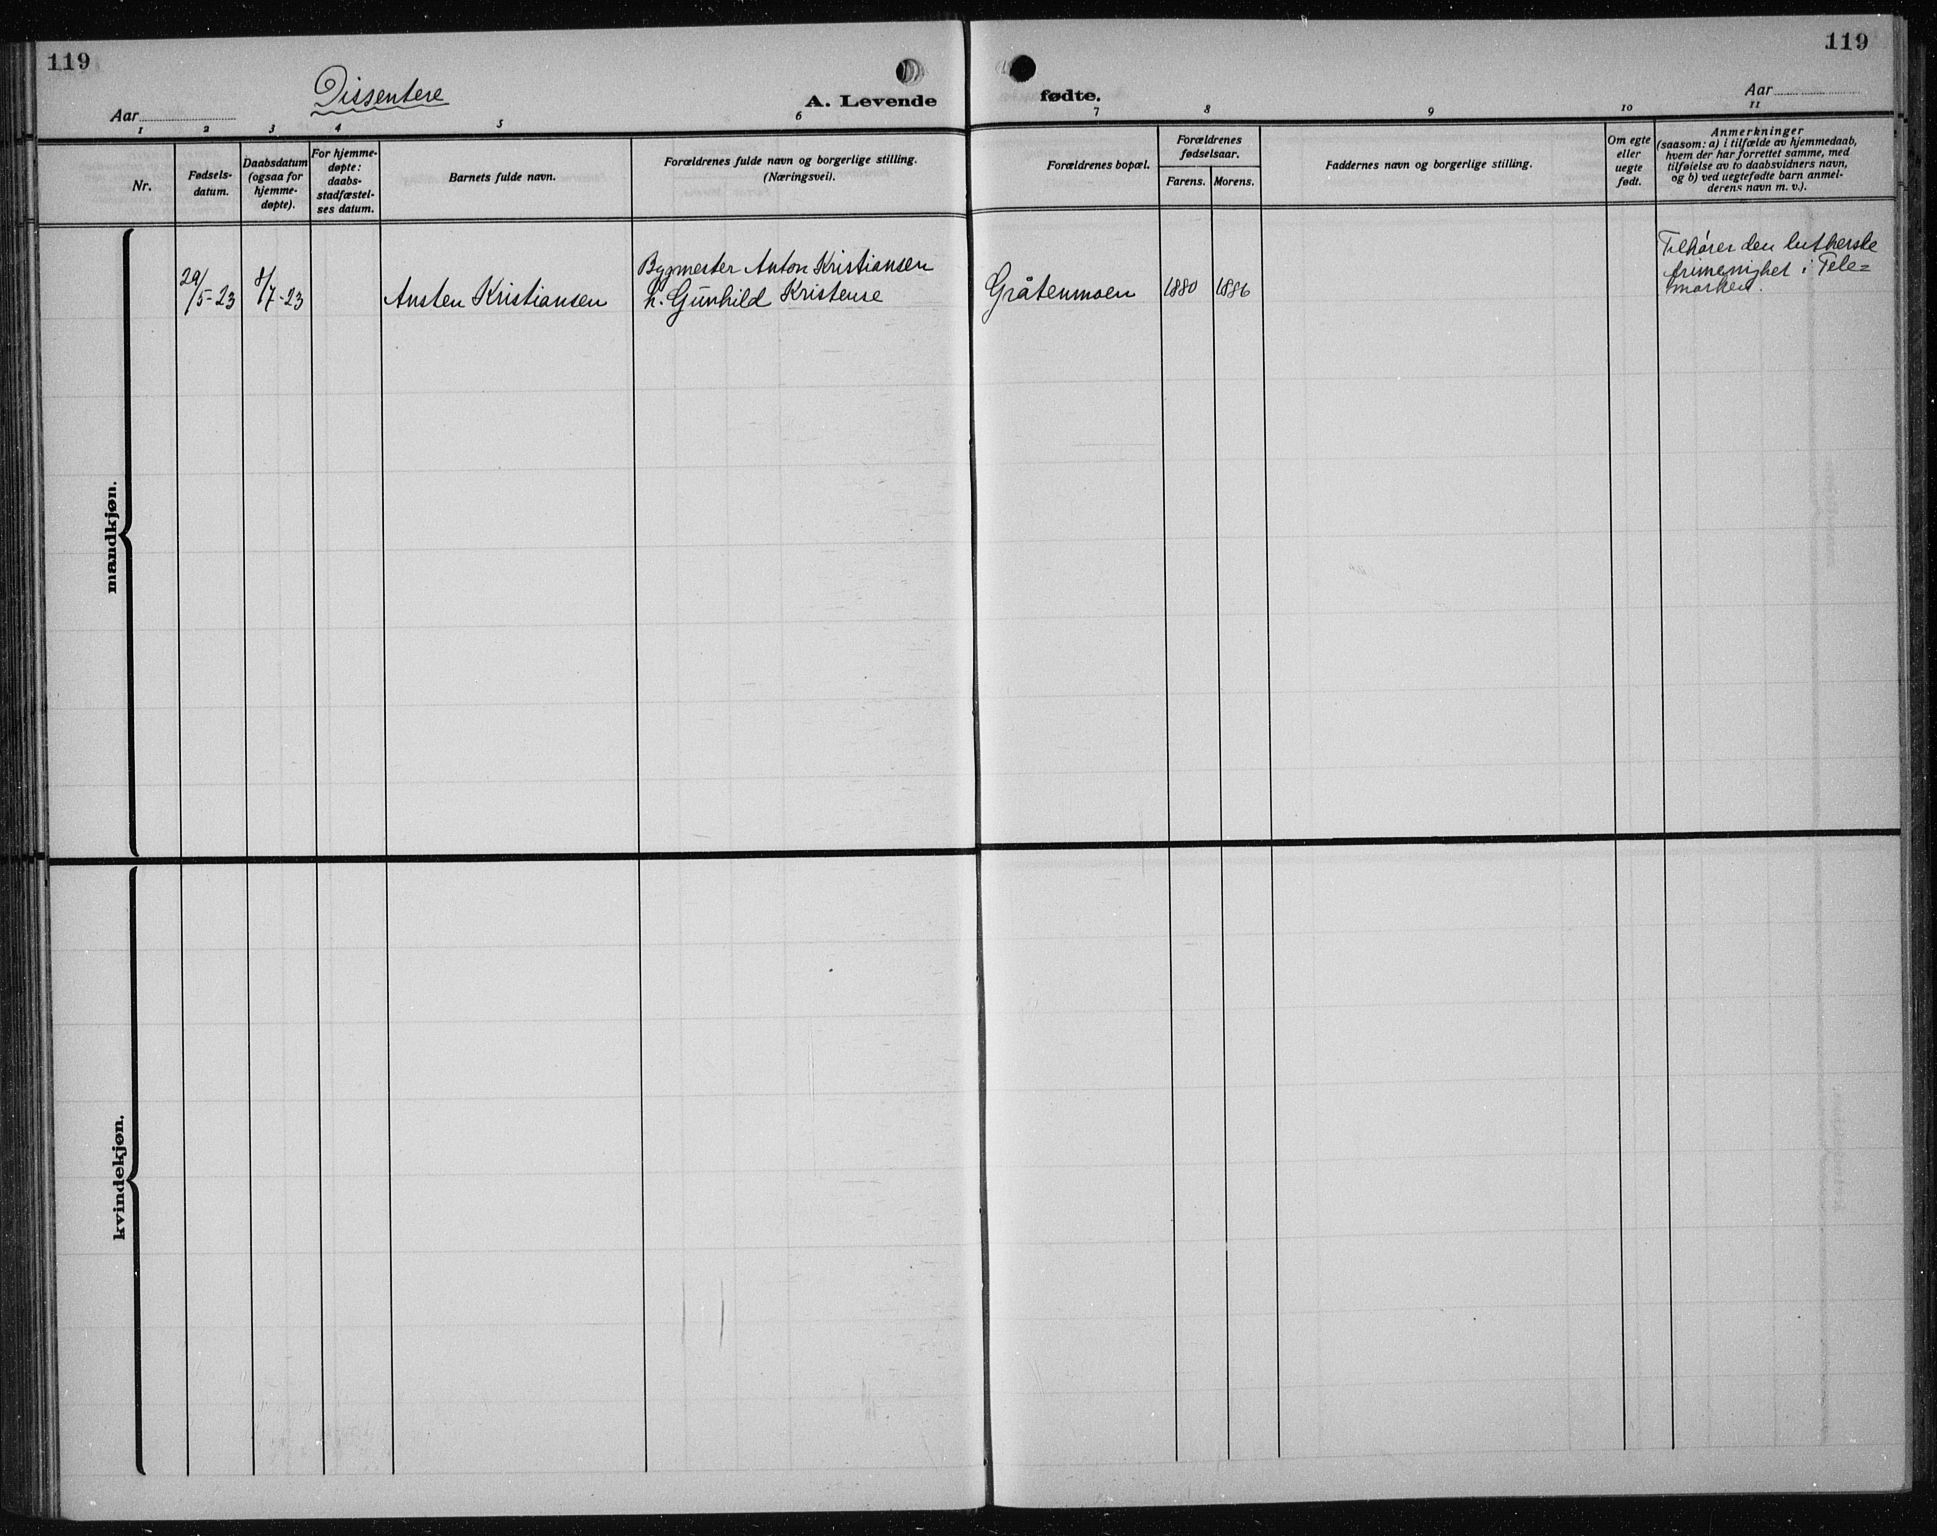 119
119
Dissentere
A. Levende
fødte.
Aar
Aar
1 2 3 4 5 6 7 8 9 10 11
Nr.
Fødsels-
datum.
Daabsdatum
(ogsaa for
hjemme-
døpte).
For hjemme-
døpte:
daabs-
stadfæstel-
ses datum.
Barnets fulde navn.
Forældrenes fulde navn og borgerlige stilling.
(Næringsvei).
Forældrenes bopæl.
Forældrenes
fødselsaar.
Farens. Morens.
Faddernes navn og borgerlige stilling.
Om egte
eller
uegte
født.
Anmerkninger
(saasom: a) i tilfælde av hjemmedaab,
hvem der har forrettet samme, med
tilføielse av to daabsvidners navn,
og b) ved uegtefødte barn anmel-
derens navn m. v.).
mandkjøn.
29/5-23
8/7-23
Austen Kristiansen
Bygmester Anton Kristiansen
h. Gunhild Kristense
Gråtenmoen
1880
1886
Tilhører den lutherske
frimenighet i Tele=
marken.
kvindekjøn.